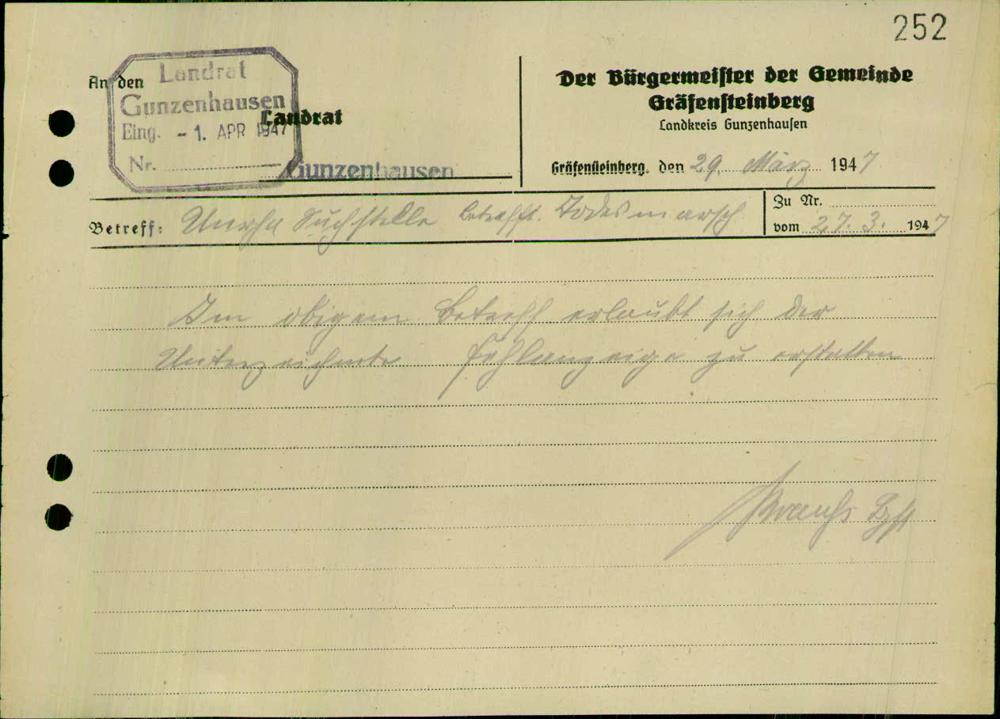 252
An den
Landrat
Gunzenhausen
Eing. - 1. APR 1947
Nr.
Landrat
Gunzenhausen
Der Bürgermeister der Gemeinde
Gräfensteinberg
Landkreis Gunzenhausen
Gräfensteinberg, den 29. März 1947
Betreff: Unrra Suchstelle betrefft. Todesmarsch
Zu Nr.
vom 27. 3. 1947
Im obigem Betreff erlaubt sich der
Unterzeichnete Fehlanzeige zu erstatten